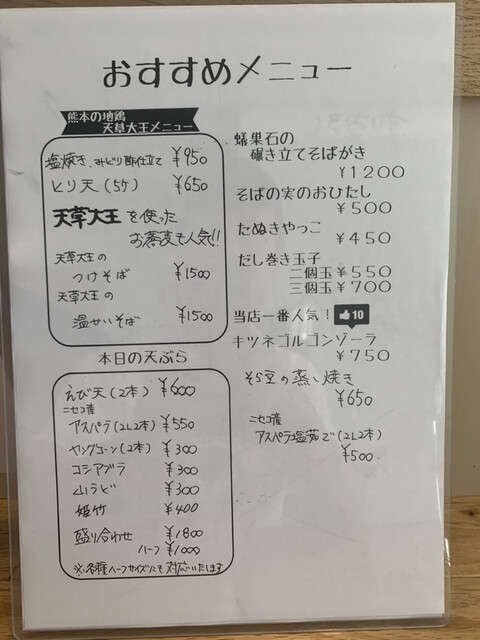 おすすめメニュー
熊本の地鶏
天草大王メニュー
塩焼き、みどり酢仕立て ¥950
とり天(5ケ) ¥650
天草大王を使った
お蕎麦も人気!!
天草大王の
つけそば ¥1500
天草大王の
温かいそば ¥1500
本日の天ぷら
えび天(2本) ¥600
ニセコ産
アスパラ(2L2本) ¥550
ヤングコーン(2本) ¥300
コシアブラ ¥300
山うど ¥300
姫竹 ¥400
盛り合わせ ¥1800
ハーフ ¥1000
※各種ハーフサイズにも対応いたします
蟻巣石の
碾き立てそばがき
¥1200
そばの実のおひたし
¥500
たぬきやっこ
¥450
だし巻き玉子
二個玉¥550
三個玉¥700
当店一番人気! 10
キツネゴルゴンゾーラ
¥750
そら豆の蒸し焼き
¥650
ニセコ産
アスパラ塩茹で(2L2本)
¥500